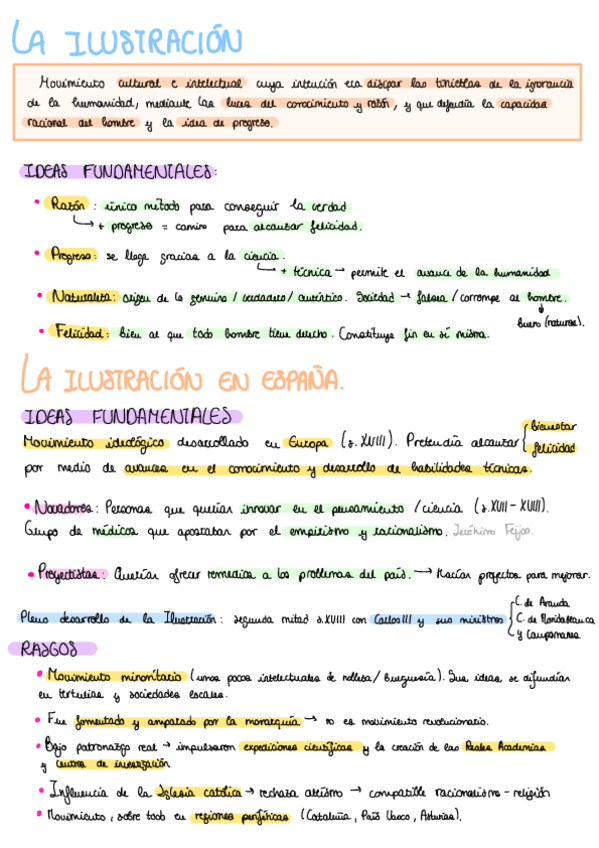 LA ILUSTRACIÓN
Movimiento cultural e intelectual cuya intención era disipar las tinieblas de la ignorancia
de la humanidad, mediante las luces del conocimiento y razón, y que defendía la capacidad
racional del hombre y la idea de progreso.
IDEAS FUNDAMENTALES:
• Razón: único método para conseguir la verdad
↳ + progreso = camino para alcanzar felicidad.
• Progreso: se llega gracias a la ciencia.
↳ + técnica → permite el avance de la humanidad
• Naturaleza: origen de lo genuino / verdadero / auténtico. Sociedad → falsea / corrompe al hombre.
↓
bueno (natural).
• Felicidad: bien al que todo hombre tiene derecho. Constituye fin en sí misma.
LA ILUSTRACIÓN EN ESPAÑA.
IDEAS FUNDAMENTALES
Movimiento ideológico desarrollado en Europa (s. XVIII). Pretendía alcanzar { bienestar
felicidad
por medio de avances en el conocimiento y desarrollo de habilidades técnicas.
• Novadores: Personas que querían innovar en el pensamiento / ciencia (s. XVII - XVIII).
Grupo de médicos que apostaban por el empirismo y racionalismo. Feijoo.
• Proyectistas: Querían ofrecer remedios a los problemas del país. → Hacían proyectos para mejorar.
Pleno desarrollo de la Ilustración: segunda mitad s. XVIII con Carlos III y sus ministros { C. de Aranda
C. de Floridablanca
y Campomanes
RASGOS
• Movimiento minoritario (unos pocos intelectuales de nobleza / burguesía). Sus ideas se difundían
en tertulias y sociedades locales.
• Fue fomentado y amparado por la monarquía → no es movimiento revolucionario.
• Bajo patronazgo real → impulsaron expediciones científicas y la creación de las Reales Academias
y centros de investigación
• Influencia de la Iglesia católica → rechaza ateísmo → compatible racionalismo - religión
• Movimiento, sobre todo en regiones periféricas (Cataluña, País Vasco, Asturias).